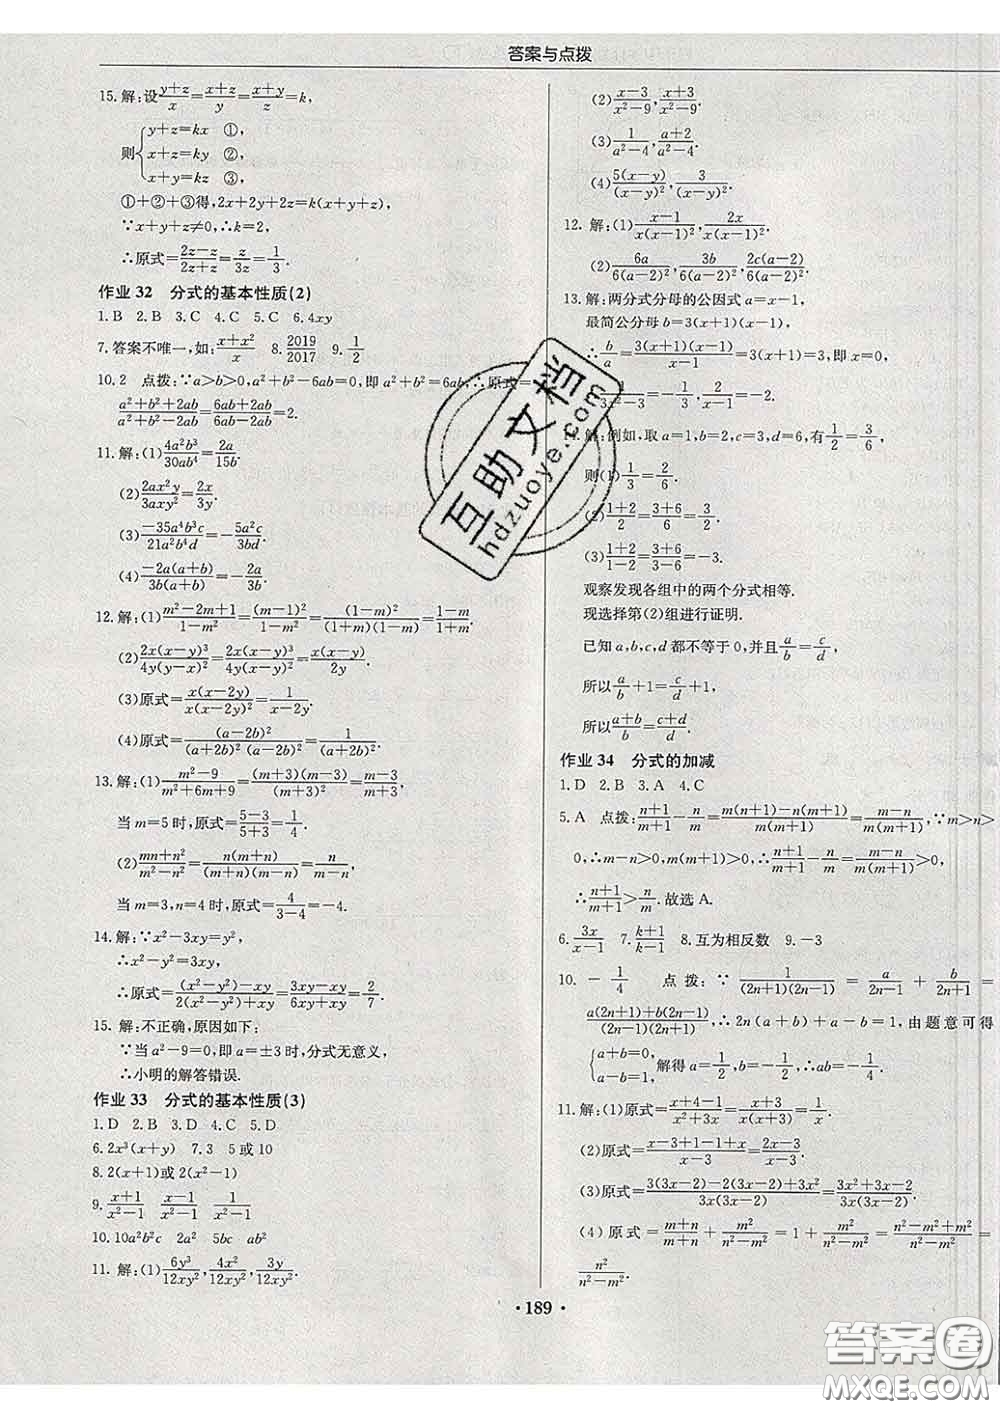 答案与点拨
15. 解:设(y+z)/x=(x+z)/y=(x+y)/z=k,
则{y+z=kx ①,
x+z=ky ②,
x+y=kz ③,
①+②+③得,2x+2y+2z=k(x+y+z),
∵x+y+z≠0,∴k=2,
∴原式=(2z-z)/(2z+z)=z/3z=1/3.
作业 32 分式的基本性质(2)
1. B 2. B 3. C 4. C 5. C 6. 4xy
7. 答案不唯一,如:(x+x²)/x 8. 2019/2017 9. 1/2
10. 2 点拨:∵a>b>0,a²+b²-6ab=0,即a²+b²=6ab,∴原式=
(a²+b²+2ab)/(a²+b²-2ab)=(6ab+2ab)/(6ab-2ab)=2.
11. 解:(1)4a²b³/30ab⁴=2a/15b.
(2)2ax²y/3axy²=2x/3y.
(3)-35a⁴b³c/21a²b⁴d=-5a²c/3bd.
(4)-2a(a+b)/3b(a+b)=-2a/3b.
12. 解:(1)(m²-2m+1)/(1-m²)=(m-1)²/(1-m²)=(1-m)²/(1+m)(1-m)=(1-m)/(1+m).
(2)2x(x-y)³/4y(y-x)²=2x(x-y)³/4y(x-y)²=x(x-y)/2y.
(3)原式=x(x-2y)/x(x-2y)²=1/(x-2y).
(4)原式=(a-2b)²/(a+2b)²(a-2b)²=1/(a+2b)².
13. 解:(1)(m²-9)/(m²+6m+9)=(m+3)(m-3)/(m+3)²=(m-3)/(m+3),
当m=5时,原式=(5-3)/(5+3)=1/4.
(2)(mn+n²)/(m²-n²)=n(m+n)/(m+n)(m-n)=n/(m-n),
当m=3,n=4时,原式=4/(3-4)=-4.
14. 解:∵x²-3xy=y²,
∴x²-y²=3xy,
∴原式=((x²-y²)-xy)/(2(x²-y²)+xy)=(3xy-xy)/(6xy+xy)=2/7.
15. 解:不正确,原因如下:
∵当a²-9=0,即a=±3时,分式无意义,
∴小明的解答错误.
作业 33 分式的基本性质(3)
1. D 2. B 3. D 4. C 5. D
6. 2x³(x+y) 7. 3 5或10
8. 2(x+1)或2(x²-1)
9. (x+1)/(x²-1) (x-1)/(x²-1) 1/(x²-1)
10. 10a²b²c 2a² 5bc ab²
11. 解:(1)6y³/12xy²,4x²/12xy²,3y/12xy².
(2)(x-3)/(x²-9),(x+3)/(x²-9).
(3)1/(a²-4),(a+2)/(a²-4).
(4)5(x-y)/(x-y)²,3/(x-y)².
12. 解:(1)(x-1)/x(x-1)²,2x/x(x-1)².
(2)6a/6(a-2)²,3b/6(a-2)²,2c(a-2)/6(a-2)².
13. 解:两分式分母的公因式a=x-1,
最简公分母b=3(x+1)(x-1),
∴b/a=3(x+1)(x-1)/(x-1)=3(x+1)=3,即x=0,
-3=-1/3,2/(x-1)=-2.
解:例如,取a=1,b=2,c=3,d=6,有1/2=3/6,
则(1)1/3=2/6.
(2)(1+2)/2=(3+6)/6=3/2.
(3)(1+2)/(1-2)=(3+6)/(3-6)=-3.
观察发现各组中的两个分式相等.
现选择第(2)组进行证明.
已知a,b,c,d都不等于0,并且a/b=c/d,
所以a/b+1=c/d+1,
所以(a+b)/b=(c+d)/d.
作业 34 分式的加减
1. D 2. B 3. A 4. C
5. A 点拨:(n+1)/(m+1)-n/m=(m(n+1)-n(m+1))/m(m+1)=(m-n)/m(m+1),∵m>n>
0,∴m-n>0,m(m+1)>0,∴(n+1)/(m+1)-n/m=(m-n)/m(m+1)>0,
∴(n+1)/(m+1)>n/m.故选A.
6. 3x/(x-1) 7. (k+1)/(k-1) 8. 互为相反数 9. -3
10. -1/4 点拨:∵1/(2n+1)(2n-1)=a/(2n-1)+b/(2n+1)=
(a(2n+1)+b(2n-1))/(2n-1)(2n+1),∴2n(a+b)+a-b=1,由题意可得
{a+b=0,
a-b=1, 解得a=1/2,b=-1/2,∴ab=-1/4.
11. 解:(1)原式=(x+4-1)/(x²+3x)=(x+3)/x(x+3)=1/x.
(2)原式=(x-3+1-1+x)/(x-3)=(2x-3)/(x-3).
(3)原式=(3(3x-2)-2(3x-2)+3x²)/3x(3x-2)=(3x²+3x-2)/3x(3x-2).
(4)原式=(m+n)/(m+n)+m²/(n²-m²)=1+m²/(n²-m²)=(n²-m²+m²)/(n²-m²)=
n²/(n²-m²).
• 189 •
互助文档
hdzuoye.com
答案卷
MXQE.COM